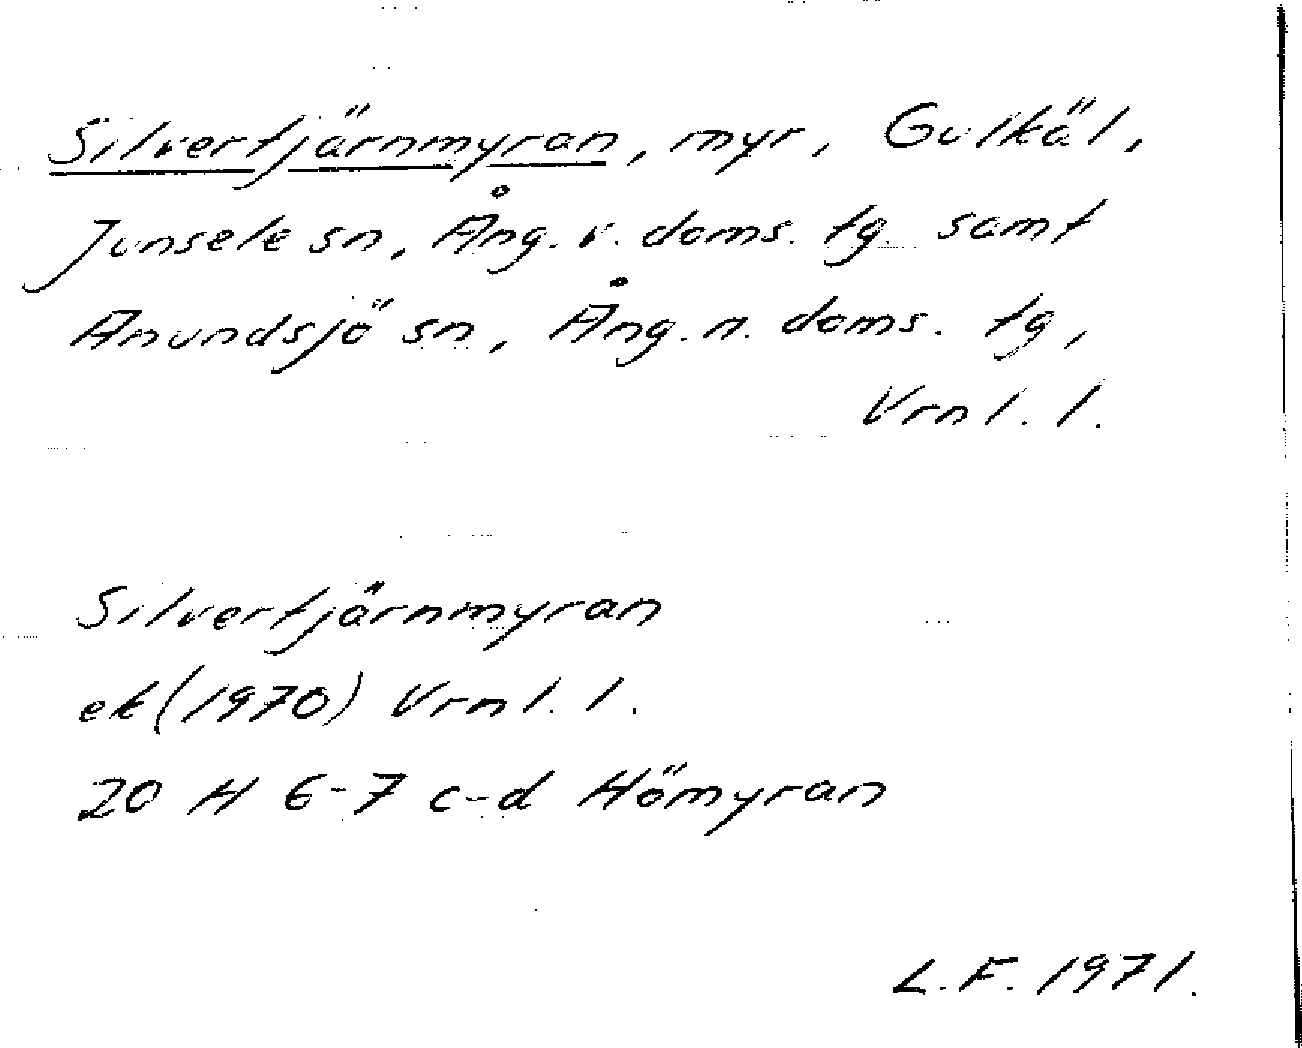 Silvertjärnmyran, myr, Gulkäl,
Junsele sn, Ång. v. doms. tg. samt
Anundsjö sn, Ång. n. doms. tg,
Vrnl. l.
Silvertjärnmyran
ek (1970) Vrnl. l.
20 H 6-7 c-d Hömyran
L.F. 1971.